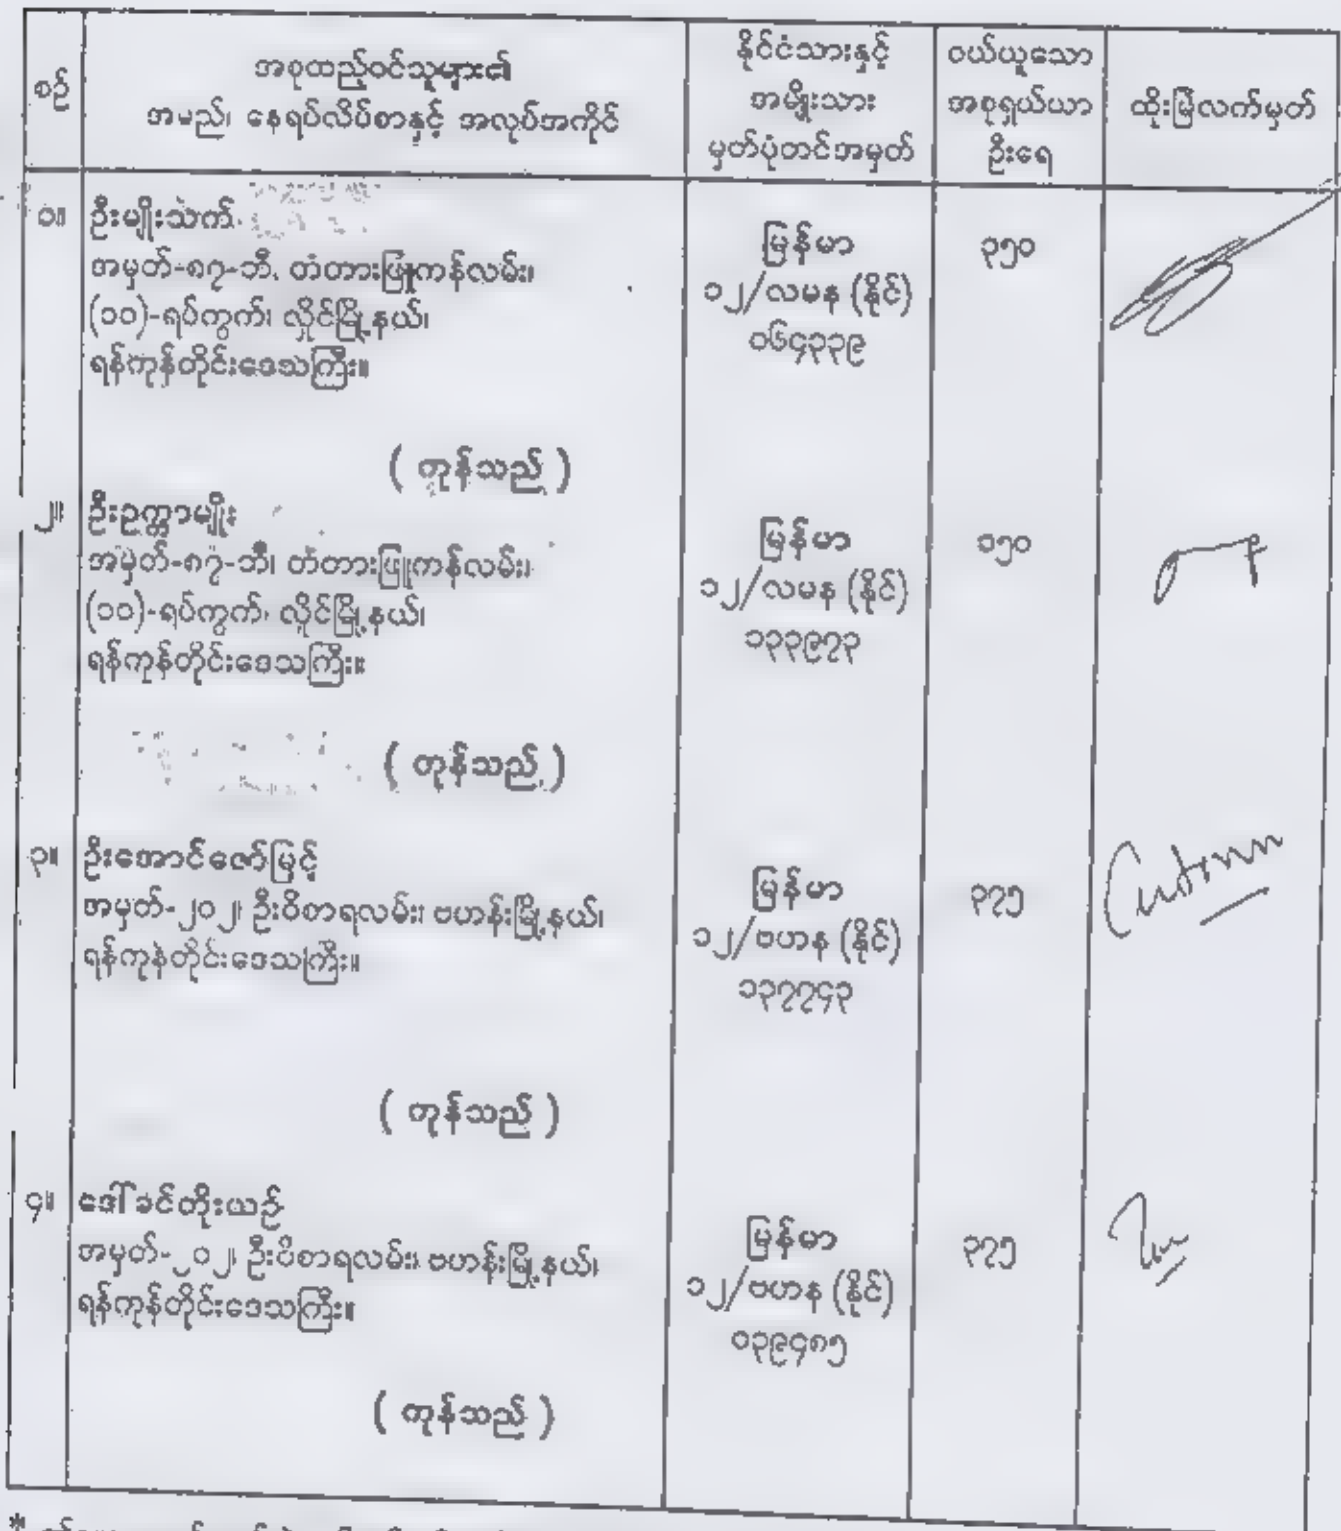 စဉ်
အစုထည့်ဝင်သူများ၏
အမည်၊ နေရပ်လိပ်စာနှင့် အလုပ်အကိုင်
နိုင်ငံသားနှင့်
အမျိုးသား
မှတ်ပုံတင်အမှတ်
ဝယ်ယူသော
အစုရှယ်ယာ
ဦးရေ
ထိုးမြဲလက်မှတ်
၁။
ဦးမျိုးသက်
အမှတ်-၈၇-ဘီ၊ တံတားဖြူကန်လမ်း၊
(၁၀)-ရပ်ကွက်၊ လှိုင်မြို့နယ်၊
ရန်ကုန်တိုင်းဒေသကြီး။
( ကုန်သည် )
မြန်မာ
၁၂/လမန (နိုင်)
၀၆၄၃၃၉
၃၅၀
၂။
ဦးဥက္ကာမျိုး
အမှတ်-၈၇-ဘီ၊ တံတားဖြူကန်လမ်း၊
(၁၀)-ရပ်ကွက်၊ လှိုင်မြို့နယ်၊
ရန်ကုန်တိုင်းဒေသကြီး။
( ကုန်သည် )
မြန်မာ
၁၂/လမန (နိုင်)
၁၃၃၉၇၃
၁၅၀
၃။
ဦးအောင်ဇော်မြင့်
အမှတ်-၂၀၂၊ ဦးဝိစာရလမ်း၊ ဗဟန်းမြို့နယ်၊
ရန်ကုန်တိုင်းဒေသကြီး။
( ကုန်သည် )
မြန်မာ
၁၂/ဗဟန (နိုင်)
၁၃၇၇၄၃
၃၇၅
၄။
ဒေါ်ခင်တိုးယဉ်
အမှတ်-၂၀၂၊ ဦးဝိစာရလမ်း၊ ဗဟန်းမြို့နယ်၊
ရန်ကုန်တိုင်းဒေသကြီး။
( ကုန်သည် )
မြန်မာ
၁၂/ဗဟန (နိုင်)
၀၃၉၄၈၅
၃၇၅